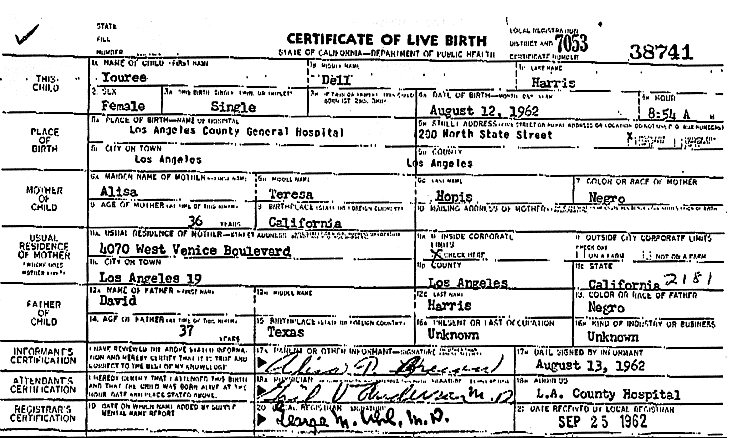 STATE
FILE
NUMBER
CERTIFICATE OF LIVE BIRTH
STATE OF CALIFORNIA—DEPARTMENT OF PUBLIC HEALTH
LOCAL REGISTRATION
DISTRICT AND 7053
CERTIFICATE NUMBER
38741
THIS CHILD
1A NAME OF CHILD—FIRST NAME
Youree
1B MIDDLE NAME
Dell
1C LAST NAME
Harris
2 SEX
Female
3A THIS BIRTH SINGLE, TWIN, OR TRIPLET
Single
4A DATE OF BIRTH—MONTH DAY YEAR
August 12, 1962
4B HOUR
8:54 A
PLACE OF BIRTH
5A PLACE OF BIRTH—NAME OF HOSPITAL
Los Angeles County General Hospital
5B STREET ADDRESS
200 North State Street
5C CITY OR TOWN
Los Angeles
COUNTY
Los Angeles
MOTHER OF CHILD
6A MAIDEN NAME OF MOTHER—FIRST NAME
Alisa
6B MIDDLE NAME
Teresa
6C LAST NAME
Hopis
7 COLOR OR RACE OF MOTHER
Negro
8 AGE OF MOTHER (AT TIME OF THIS BIRTH)
36 YEARS
9 BIRTHPLACE (STATE OR FOREIGN COUNTRY)
California
10 MAILING ADDRESS OF MOTHER
USUAL RESIDENCE OF MOTHER
11A USUAL RESIDENCE OF MOTHER—STREET ADDRESS
4070 West Venice Boulevard
IF INSIDE CORPORATE LIMITS
X CHECK HERE
IF OUTSIDE CITY CORPORATE LIMITS
CHECK ONE
ON A FARM
NOT ON A FARM
11C CITY OR TOWN
Los Angeles 19
11D COUNTY
Los Angeles
11E STATE
California 2181
FATHER OF CHILD
12A NAME OF FATHER—FIRST NAME
David
12B MIDDLE NAME
12C LAST NAME
Harris
13 COLOR OR RACE OF FATHER
Negro
14 AGE OF FATHER (AT TIME OF THIS BIRTH)
37 YEARS
15 BIRTHPLACE (STATE OR FOREIGN COUNTRY)
Texas
16A PRESENT OR LAST OCCUPATION
Unknown
16B KIND OF INDUSTRY OR BUSINESS
Unknown
INFORMANT'S CERTIFICATION
I HAVE REVIEWED THE ABOVE STATED INFORMATION AND HEREBY CERTIFY THAT IT IS TRUE AND CORRECT TO THE BEST OF MY KNOWLEDGE
17A PARENT OR OTHER INFORMANT—SIGNATURE
17B DATE SIGNED BY INFORMANT
August 13, 1962
ATTENDANT'S CERTIFICATION
I HEREBY CERTIFY THAT I ATTENDED THIS BIRTH AND THAT THE CHILD WAS BORN ALIVE AT THE HOUR DATE AND PLACE STATED ABOVE.
18A PHYSICIAN
Anderson M.D
18B ADDRESS
L.A. County Hospital
REGISTRAR'S CERTIFICATION
19 DATE ON WHICH NAME ADDED BY SUPPLEMENTAL NAME REPORT
20 LOCAL REGISTRAR SIGNATURE
George M. Uhl, M.D.
21 DATE RECEIVED BY LOCAL REGISTRAR
SEP 25 1962